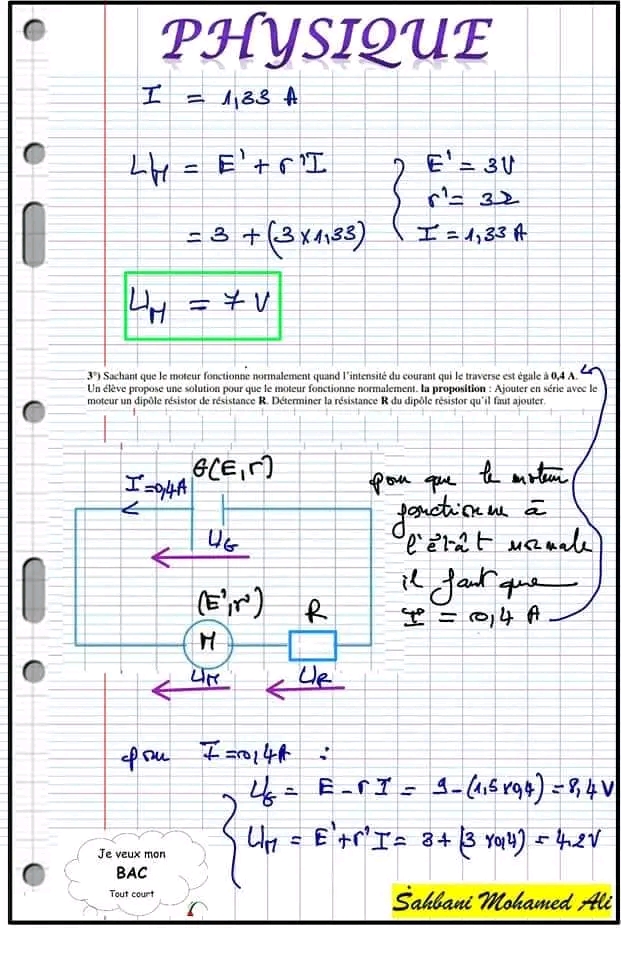 PHYSIQUE
I = 1,33 A
UM = E' + r'I
E' = 3V
r' = 3Ω
= 3 + (3 x 1,33)
I = 1,33 A
UM = 7 V
3°) Sachant que le moteur fonctionne normalement quand l'intensité du courant qui le traverse est égale à 0,4 A.
Un élève propose une solution pour que le moteur fonctionne normalement. la proposition : Ajouter en série avec le
moteur un dipôle résistor de résistance R. Déterminer la résistance R du dipôle résistor qu'il faut ajouter.
G(E,r)
I=0,4A
UG
(E',r')
R
M
UM
UR
pour que le moteur
fonctionne à
l'état normale
il faut que
I = 0,4 A
pour I=0,4A :
UG = E - rI = 9-(1,5x0,4) = 8,4V
UM = E'+r'I = 3+(3x0,4) = 4,2V
Je veux mon
BAC
Tout court
Sahbani Mohamed Ali